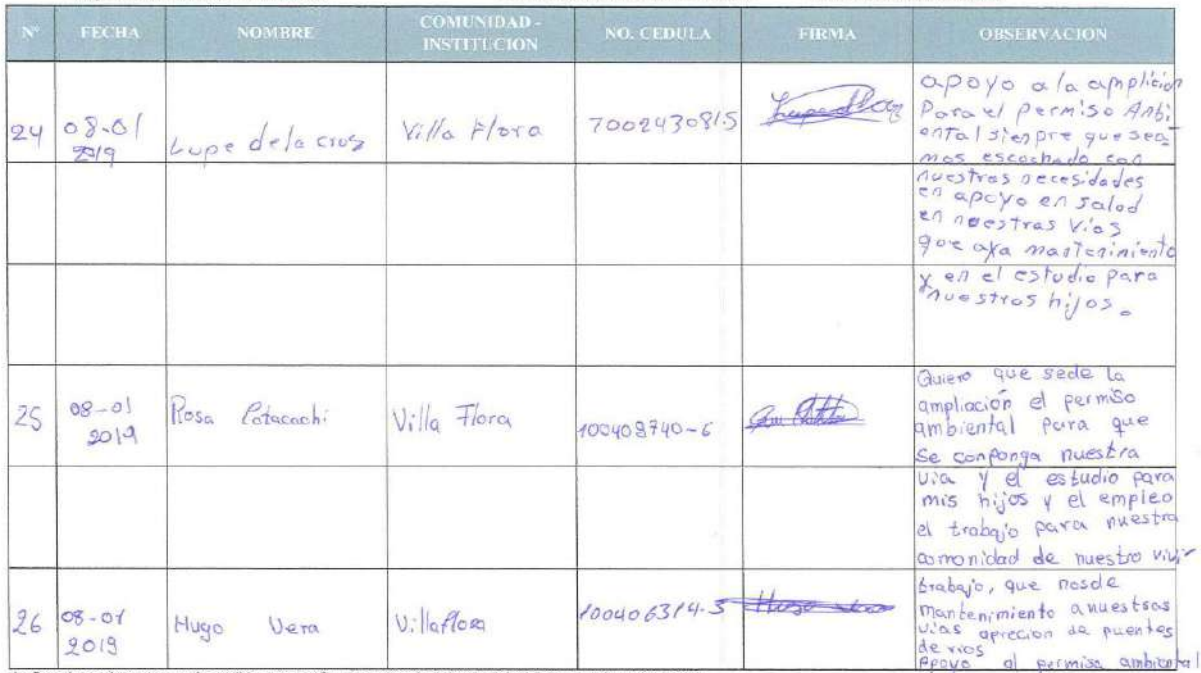 Nº FECHA NOMBRE COMUNIDAD - INSTITUCION NO. CEDULA FIRMA OBSERVACION
24 08-01 2019 Lupe dela cruz Villa Flora 7002430815
apoyo a la amplicion
Para el Permiso Anbi
ental sienpre que sea
mos escochado con
nuestras necesidades
en apoyo en salod
en noestras vias
que aya mantenimiento
y en el estudio para
nuestros hijos.
25 08-01 2019 Rosa Cotacachi Villa Flora 100408740-6
Quiero que sede la
ampliación el permiso
ambiental para que
Se conponga nuestra
via y el estudio para
mis hijos y el empleo
el trabajo para nuestra
comonidad de nuestro vivir
26 08-01 2019 Hugo Vera Villaflora 100406314-5
trabajo, que nosde
mantenimiento anuestsas
vias aprecion de puentes
de rios
Apoyo al permiso ambiental